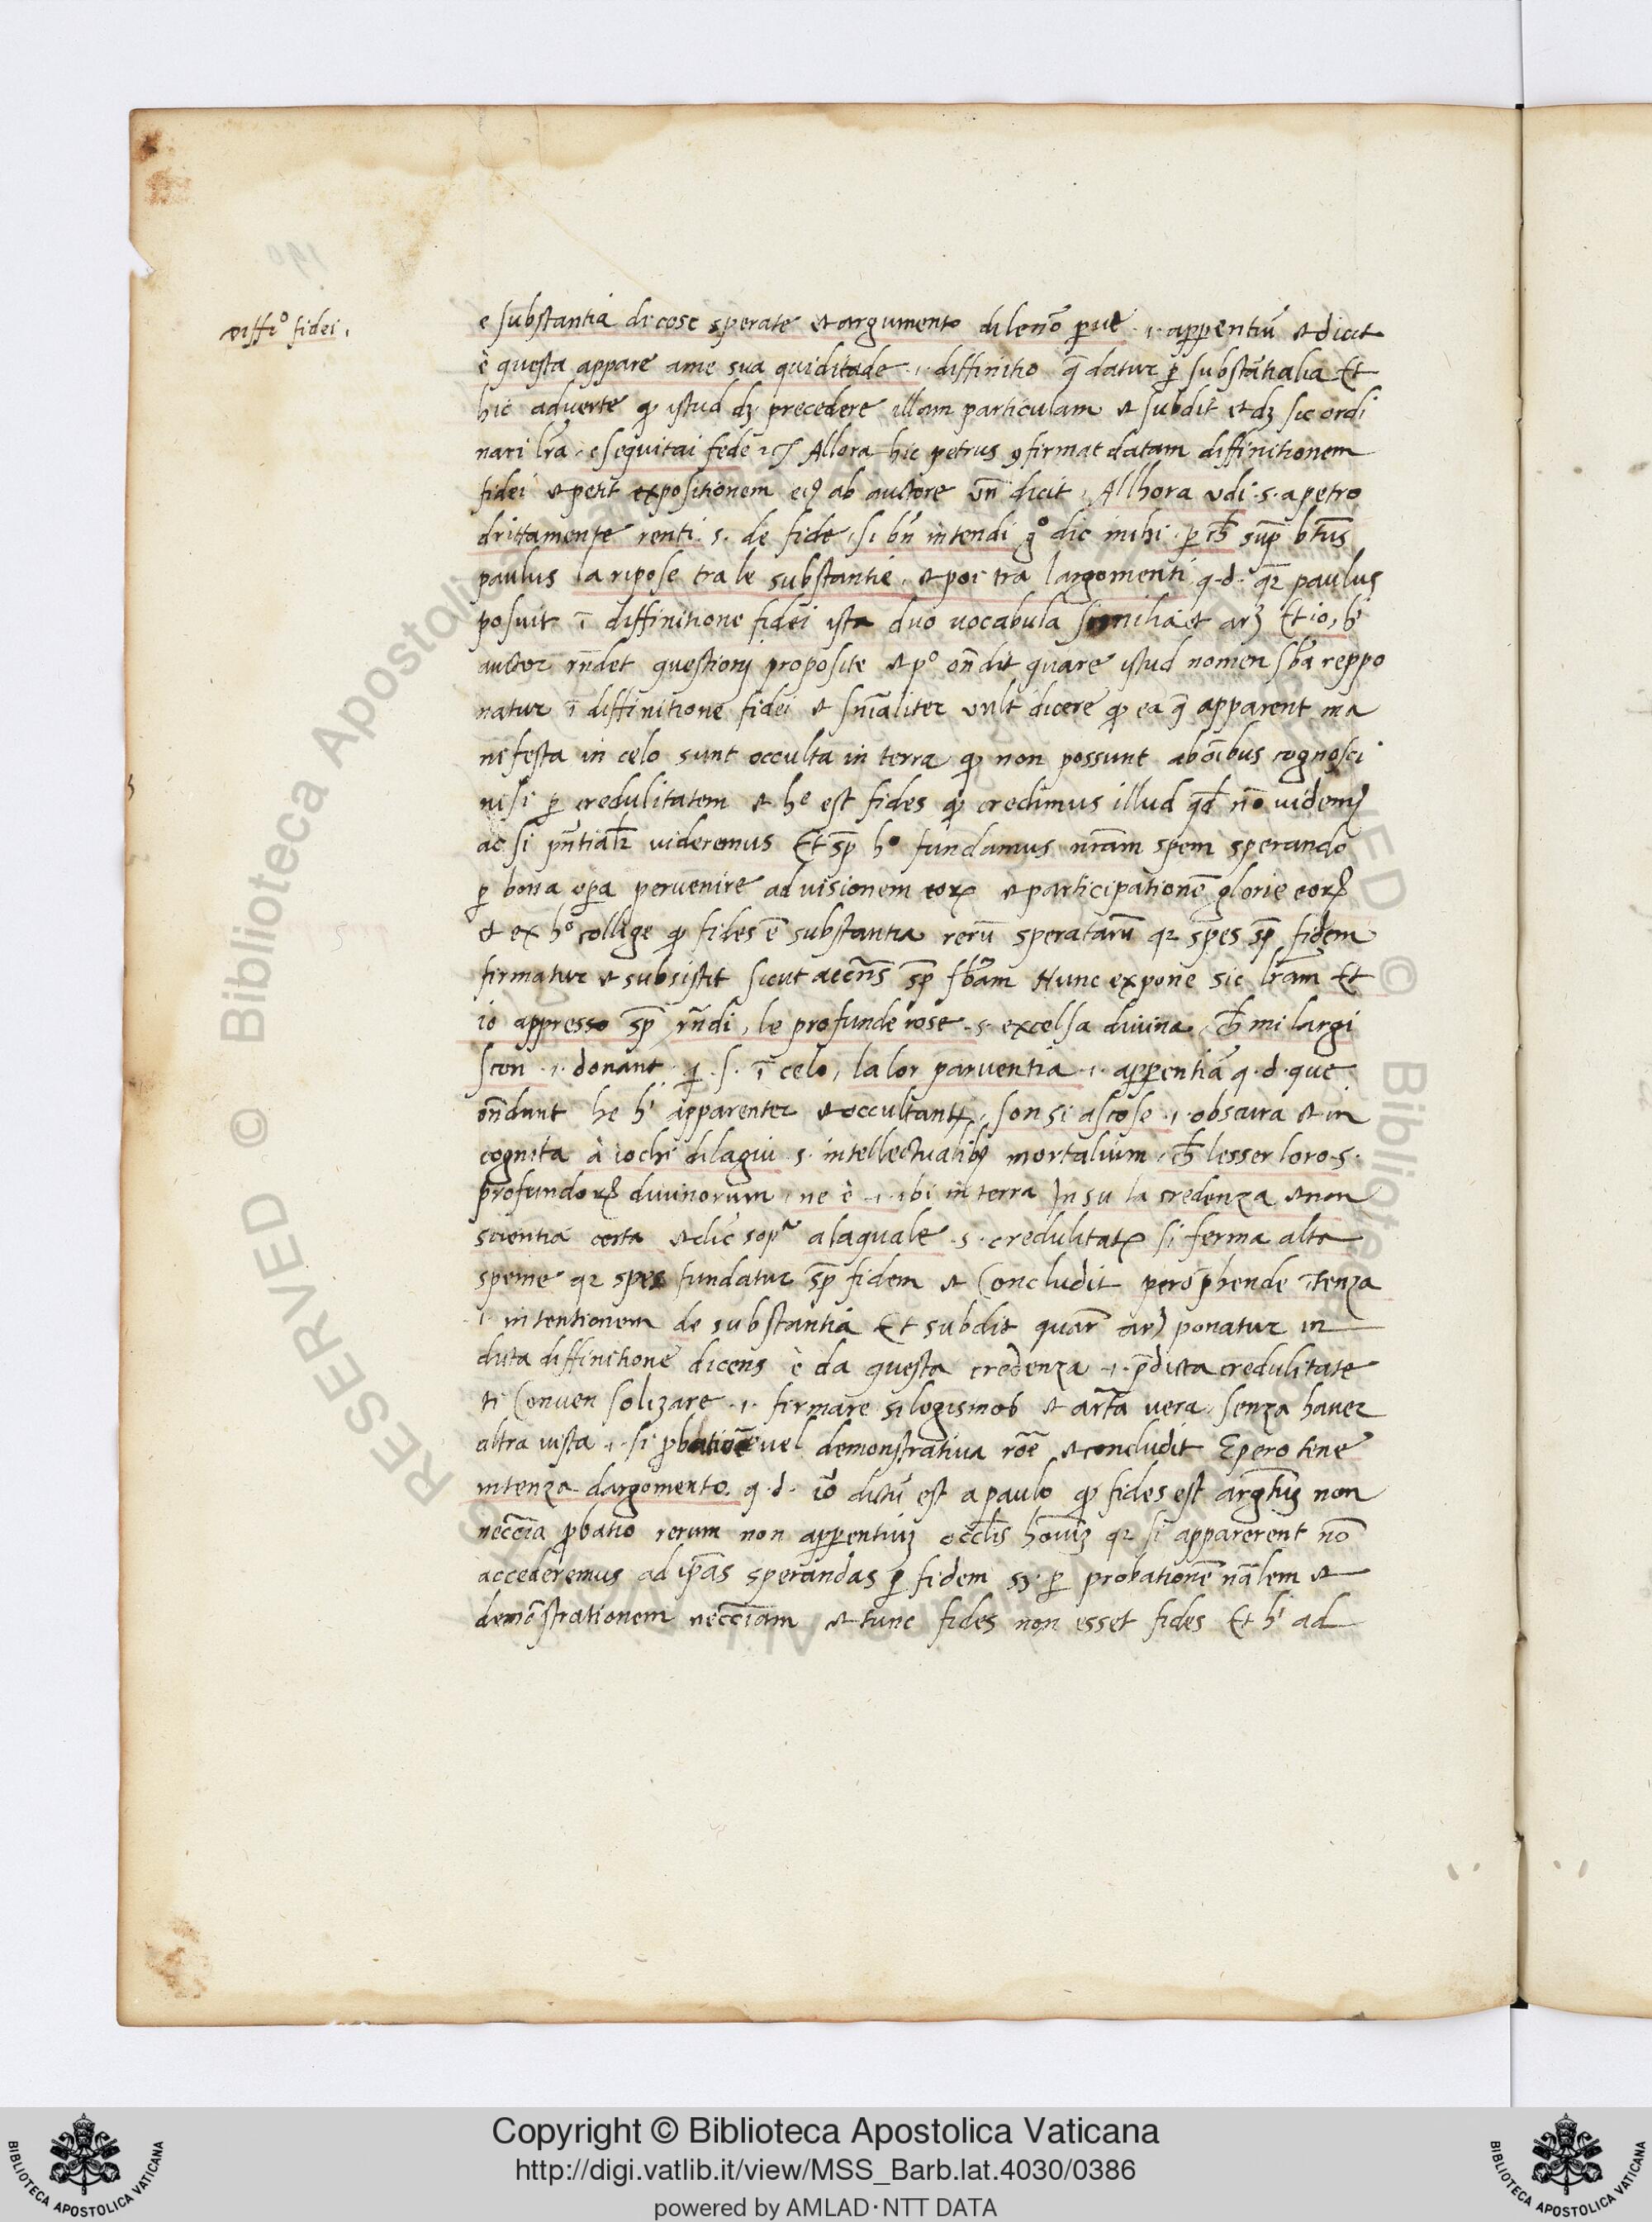 diffio fidei.
e substantia di cose sperate et argumento di lenō ꝑue .i. apparentiū et dicit
è questa appare ame sua quiditade .i. diffinitio q̄ datur ꝑ substātialia Et
hic adverte ꝙ istud dȝ precedere illam particulam et subdit et dȝ sic ordi
nari lrā. e seguitai fede Allora hic petrus ꝯfirmat datam diffinitionem
fidei et petit expositionem eiꝰ ab auctore vn̄ dicit, Allhora udi .s. a petro
drittamente senti .s. de fide, si bn̄ intendi gͦ dic mihi. ꝑ cħ sup̄ btūs
paulus la ripose tra le substantie. et poi tra largomenti q.d. qr̄ paulus
posuit ī diffinitione fidei ista duo vocabula similia et arȝ Et io, hͥ
auctor rn̄det questioni proposite et pͦ on̄dit quare istud nomen sba reppo
natur ī diffinitione fidei et sn̄ialiter vult dicere ꝙ ea q̄ apparent ma
nifesta in celo sunt occulta in terra ꝙ non possunt ab oībus cognosci
nisi ꝑ credulitatem et hͤ est fides ꝙ credimus illud qđ nō videmꝰ
ac si pn̄tialr̄ videremus Et sp̄ hͦ fundamus nrām spem sperando
ꝑ bona opa pervenire ad visionem eorꝝ et participationē glorie eorꝝ
et ex hͦ collige ꝙ fides ē substantia rerū speratarū qꝛ spes sp̄ fidem
firmatur et subsistit sicut accn̄s sp̄ sbam Nunc expone sic lrām Et
io appresso sp̄ rn̄di, le profunde cose .s. excelsa divina, cħ mi largi
scon .i. donant .s. ī celo, la lor parventia .i. apparentiā q.d. que
on̄dunt he hͥ apparenter et occultantꝝ, son si ascose .i. obscura et in
cognita à iochi dilagiu .s. intellectualibꝰ mortalium, cħ lesser loro .s.
profundorꝝ divinorum, ne è .i. ibi in terra In su la credenza et non
scientia certa et dic̄ sopa a laquale .s. credulitatꝭ si ferma alta
speme qꝛ spes fundatur sp̄ fidem et Concludit pero p̄hende ītenza
.i. intentionem de substantia Et subdit quar̄ ponatur in
dicta diffinitione dicens è da questa credenza .i. p̄dicta credulitate
ti Conven solizare .i. firmare silogismos et arta vera, senza haver
altra vista .i. si ꝓbatione vel demonstrativa rōe et concludit E pero tene
intenza dargomento. q.d. iō dictū est a paulo ꝙ fides est argtuȝ non
necc̄ia ꝓbatio rerum non apparentiuȝ occlis hoīuȝ qꝛ si apparerent nō
accederemus ad ip̄as sperandas ꝑ fidem sȝ ꝑ probationē nālem et
demōstrationem necc̄iam et tunc fides non esset fides Et hͥ ad
Copyright © Biblioteca Apostolica Vaticana
http://digi.vatlib.it/view/MSS_Barb.lat.4030/0386
powered by AMLAD·NTT DATA